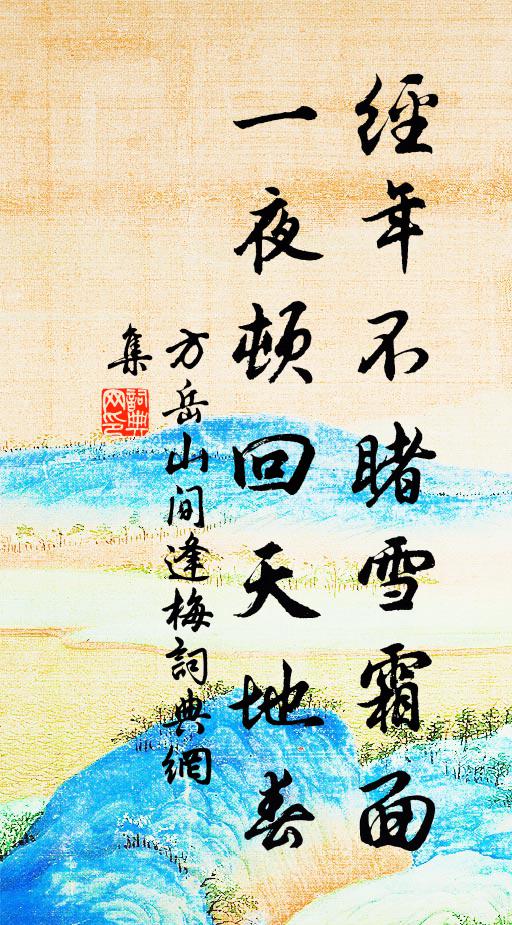 經年不睹雪霜面
一夜頓回天地春
方岳山间逢梅詞典網
集
詞典网印